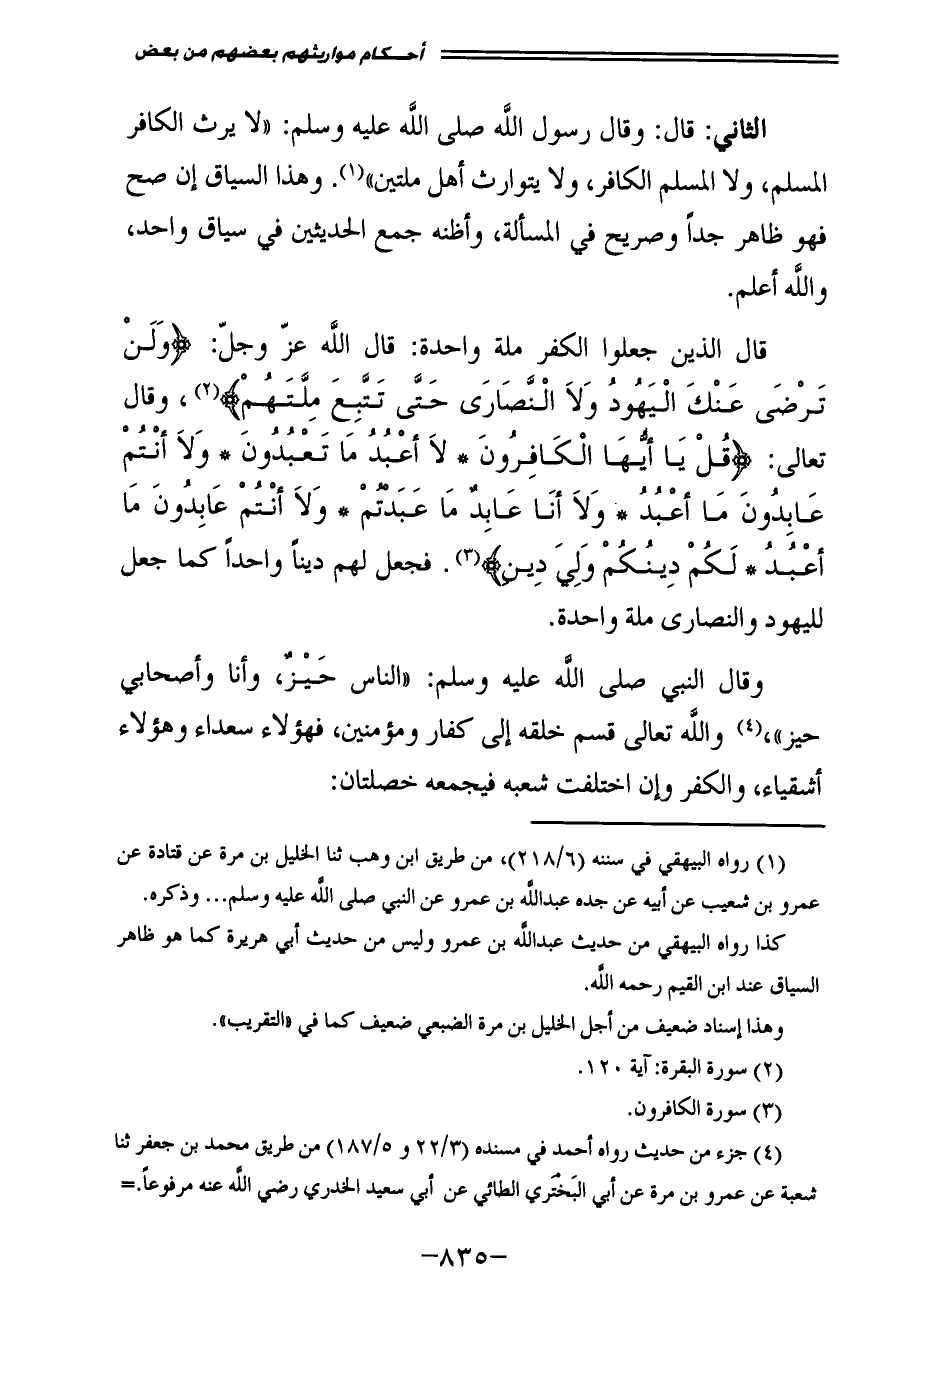 أحــكام مواريثهم بعضهم من بعض
الثاني: قال: وقال رسول اللَّه صلى اللَّه عليه وسلم: «لا يرث الكافر
المسلم، ولا المسلم الكافر، ولا يتوارث أهل ملتين»(١). وهذا السياق إن صح
فهو ظاهر جداً وصريح في المسألة، وأظنه جمع الحديثين في سياق واحد،
واللَّه أعلم.
قال الذين جعلوا الكفر ملة واحدة: قال اللَّه عزّ وجلّ: ﴿وَلَـنْ
تَـرْضَى عَـنْكَ الْيَهُودُ وَلاَ الْـنَّصَارَى حَـتَّى تَـتَّبِعَ مِلَّـتَـهُـمْ﴾(٢)، وقال
تعالى: ﴿قُـلْ يَـا أَيُّـهَـا الْـكَـافِـرُونَ * لاَ أَعْبُدُ مَا تَـعْبُدُونَ * وَلاَ أَنْـتُـمْ
عَـابِدُونَ مَـا أَعْـبُـدُ * وَلاَ أَنَـا عَـابِدٌ مَا عَـبَدْتُمْ * وَلاَ أَنْـتُـمْ عَابِدُونَ مَا
أَعْـبُـدُ * لَـكُـمْ دِيـنُـكُـمْ وَلِيَ دِيـنِ﴾(٣). فجعل لهم ديناً واحداً كما جعل
لليهود والنصارى ملة واحدة.
وقال النبي صلى اللَّه عليه وسلم: «الناس حَـيْـزٌ، وأنا وأصحابي
حيز»،(٤) واللَّه تعالى قسم خلقه إلى كفار ومؤمنين، فهؤلاء سعداء وهؤلاء
أشقياء، والكفر وإن اختلفت شعبه فيجمعه خصلتان:
(١) رواه البيهقي في سننه (٢١٨/٦)، من طريق ابن وهب ثنا الخليل بن مرة عن قتادة عن
عمرو بن شعيب عن أبيه عن جده عبداللَّه بن عمرو عن النبي صلى اللَّه عليه وسلم... وذكره.
كذا رواه البيهقي من حديث عبداللَّه بن عمرو وليس من حديث أبي هريرة كما هو ظاهر
السياق عند ابن القيم رحمه اللَّه.
وهذا إسناد ضعيف من أجل الخليل بن مرة الضبعي ضعيف كما في «التقريب».
(٢) سورة البقرة: آية ١٢٠.
(٣) سورة الكافرون.
(٤) جزء من حديث رواه أحمد في مسنده (٢٢/٣ و ١٨٧/٥) من طريق محمد بن جعفر ثنا
شعبة عن عمرو بن مرة عن أبي البَخْتَري الطائي عن أبي سعيد الخدري رضي اللَّه عنه مرفوعاً.=
–٨٣٥–